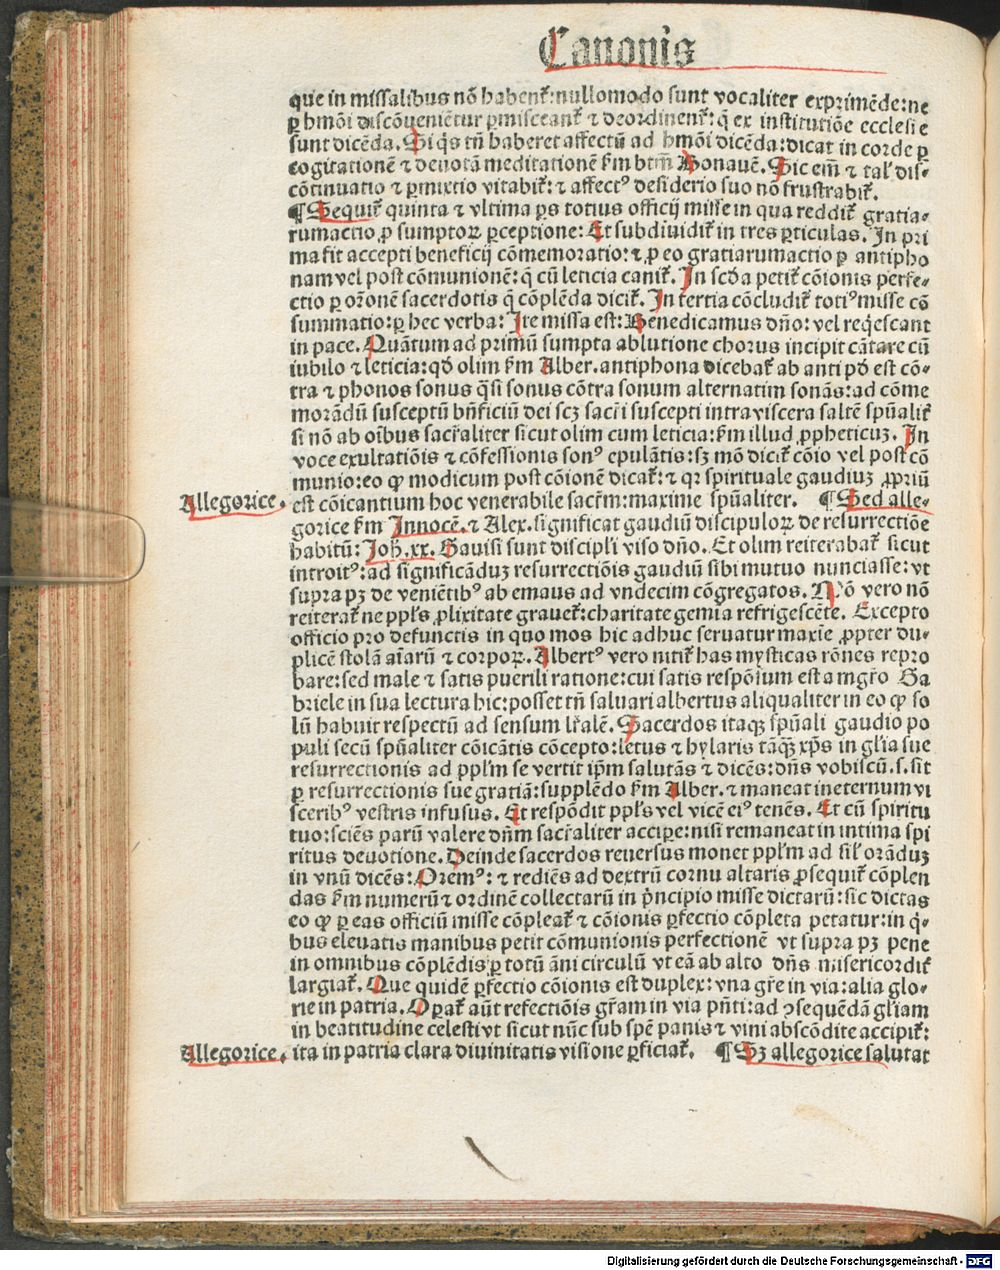 Canonis
que in missalibus nō habent᷑: nullomodo sunt vocaliter exprimēde: ne
ꝑ hmōi discōueniēcur ꝑmisceant᷑ ⁊ deordinent᷑: q̄ ex institutiōe ecclesie
sunt dicēda. Si q̇s tn̄ haberet affectū ad hmōi dicēda: dicat in corde ꝑ
cogitationē ⁊ deuotā meditationē ẜm btm̄ Bonauē. Sic em̄ ⁊ tal' dis-
cōtinuatio ⁊ ꝑmixtio vitabit᷑: ⁊ affectꝰ desiderio suo nō frustrabit᷑.
¶ Sequit᷑ quinta ⁊ vltima ꝑs totius officij misse in qua reddit᷑ gratia-
rumactio ꝓ sumptoꝝ ꝑceptione: Et subdiuidit᷑ in tres ꝑticulas. In pri
ma fit accepti beneficij cōmemoratio: ⁊ ꝓ eo gratiarumactio ꝑ antipho
nam vel post cōmunionē: q̄ cū leticia canit᷑. In scd̄a petit᷑ cōionis perfe-
ctio ꝑ or̄onē sacerdotis q̄ cōplēda dicit᷑. In tertia cōcludit᷑ totiꝰ misse cō
summatio: ꝑ hec verba: Ite missa est: Benedicamus dn̄o: vel req̇escant
in pace. Quātum ad primū sumpta ablutione chorus incipit cātare cū
iubilo ⁊ leticia: qd̄ olim ẜm Alber. antiphona dicebat᷑ ab anti pd̄ est cō-
tra ⁊ phonos sonus q̄si sonus cōtra sonum alternatim sonās: ad cōme
morādū susceptū bn̄ficiū dei scꝫ sacr̄i suscepti intra viscera saltē spūalit᷑
si nō ab oībus sacr̄aliter sicut olim cum leticia: ẜm illud ꝓpheticuꝫ. In
voce exultatiōis ⁊ cōfessionis sonꝰ epulātis: sꝫ mō dicit᷑ cōio vel post cō
munio: eo ꝙ modicum post cōionē dicat᷑: ⁊ qꝛ spirituale gaudiuꝫ ꝓpriū
Allegorice. est cōicantium hoc venerabile sacr̄m: maxime spūaliter. ¶ Sed alle-
gorice ẜm Innocē. ⁊ Alex. significat gaudiū discipuloꝝ de resurrectiōe
habitū: Joh̄. xx. Gauisi sunt discipl'i viso dn̄o. Et olim reiterabat᷑ sicut
introitꝰ: ad significāduꝫ resurrectiōis gaudiū sibi mutuo nunciasse: vt
supra pꝫ de veniētibꝰ ab emaus ad vndecim cōgregatos. Mō vero nō
reiterat᷑ ne ppl's ꝓlixitate grauet᷑: charitate gemia refrigescēte. Excepto
officio pro defunctis in quo mos hic adhuc seruatur maxīe ꝓpter du-
plicē stolā aīarū ⁊ corpoꝝ. Albertꝰ vero nitit᷑ has mysticas rōnes repro
bare: sed male ⁊ satis puerili ratione: cui satis respōsum est a mgr̄o Ga
briele in sua lectura hic: posset tn̄ saluari albertus aliqualiter in eo ꝙ so
lū habuit respectū ad sensum lr̄alē. Sacerdos itaqꝫ spūali gaudio po
puli secū spūaliter cōicātis cōcepto: letus ⁊ hylaris tāqꝫ xp̄s in gl'ia sue
resurrectionis ad ppl'm se vertit ip̄m salutās ⁊ dicēs: dn̄s vobiscū. s. sit
ꝑ resurrectionis sue gratiā: supplēdo ẜm Alber. ⁊ maneat ineternum vi
sceribꝰ vestris infusus. Et respōdit ppl's vel vicē eiꝰ tenēs. Et cū spiritu
tuo: sciēs parū valere dn̄m sacr̄aliter accipe: nisi remaneat in intima spi
ritus deuotione. Deinde sacerdos reuersus monet ppl'm ad sil' orāduꝫ
in vnū dicēs: Oremꝰ: ⁊ rediēs ad dextrū cornu altaris ꝓsequit᷑ cōplen
das ẜm numerū ⁊ ordinē collectarū in p̄ncipio misse dictarū: sic dictas
eo ꝙ ꝑ eas officiū misse cōpleat᷑ ⁊ cōionis ꝑfectio cōpleta petatur: in q̇-
bus eleuatis manibus petit cōmunionis perfectionē vt supra pꝫ pene
in omnibus cōplēdis ꝑ totū āni circulū vt eā ab alto dn̄s misericordit᷑
largiat᷑. Que quidē ꝑfectio cōionis est duplex: vna gr̄e in via: alia glo-
rie in patria. Oꝑat᷑ aūt refectiōis gr̄am in via pn̄ti: ad ꝯsequēdā gl'iam
in beatitudine celesti vt sicut nūc sub spē panis ⁊ vini abscōdite accipit᷑:
Allegorice. ita in patria clara diuinitatis visione ꝑficiat᷑. ¶ Sꝫ allegorice salutat
Digitalisierung gefördert durch die Deutsche Forschungsgemeinschaft - DFG